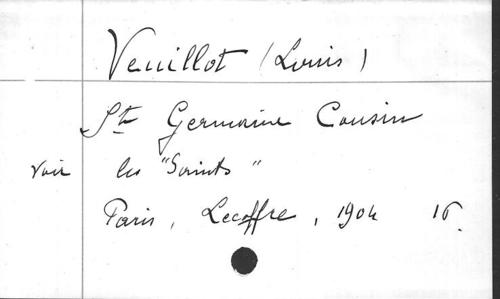 Veuillot (Louis)
Ste Germaine Cousin
voir les "Saints"
Paris, Lecoffre, 1904 16.